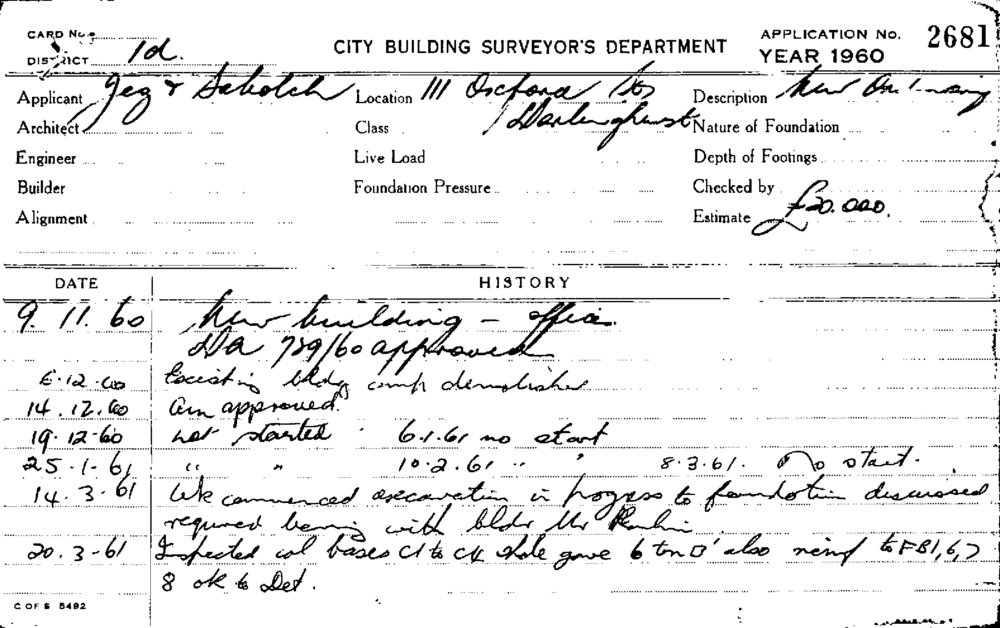 CARD No.
DISTRICT 1d.
CITY BUILDING SURVEYOR'S DEPARTMENT
APPLICATION No. 2681
YEAR 1960
Applicant Location 111 Oxford St Description New
Architect Class Darlinghurst Nature of Foundation
Engineer Live Load Depth of Footings
Builder Foundation Pressure Checked by
Alignment Estimate £20.000.
DATE HISTORY
9. 11. 60 New building - offices
DA 789/60 approved
6.12.60 Existing bldg comp demolished
14.12.60 approved.
19.12.60 not started 6.1.61 no start
25.1.61 " " 10.2.61 " " 8.3.61. No start.
14.3.61 Wk commenced excavation in progress to foundation discussed
required bearing with bldr Mr
20.3-61 Inspected col bases C1 to C4 shale gave 6 ton □' also reinf to FB1,6,7
8 ok to Det.
C OF S 5492